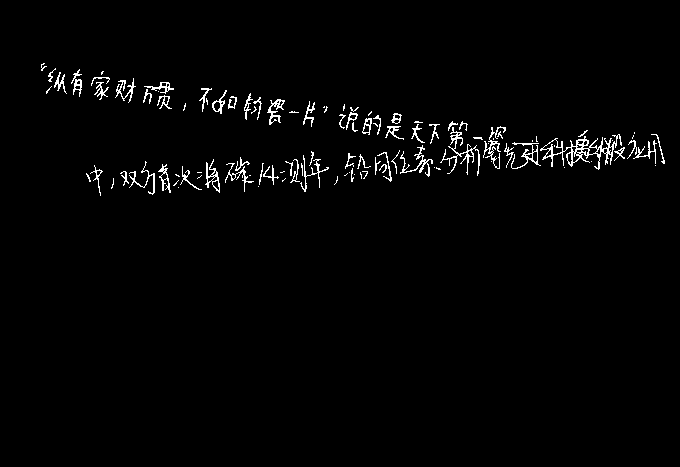 “纵有家财万贯，不如钧瓷一片”说的是天下第一瓷
中，双方首次将碳14测年，铅同位素分析等先进科技手段应用